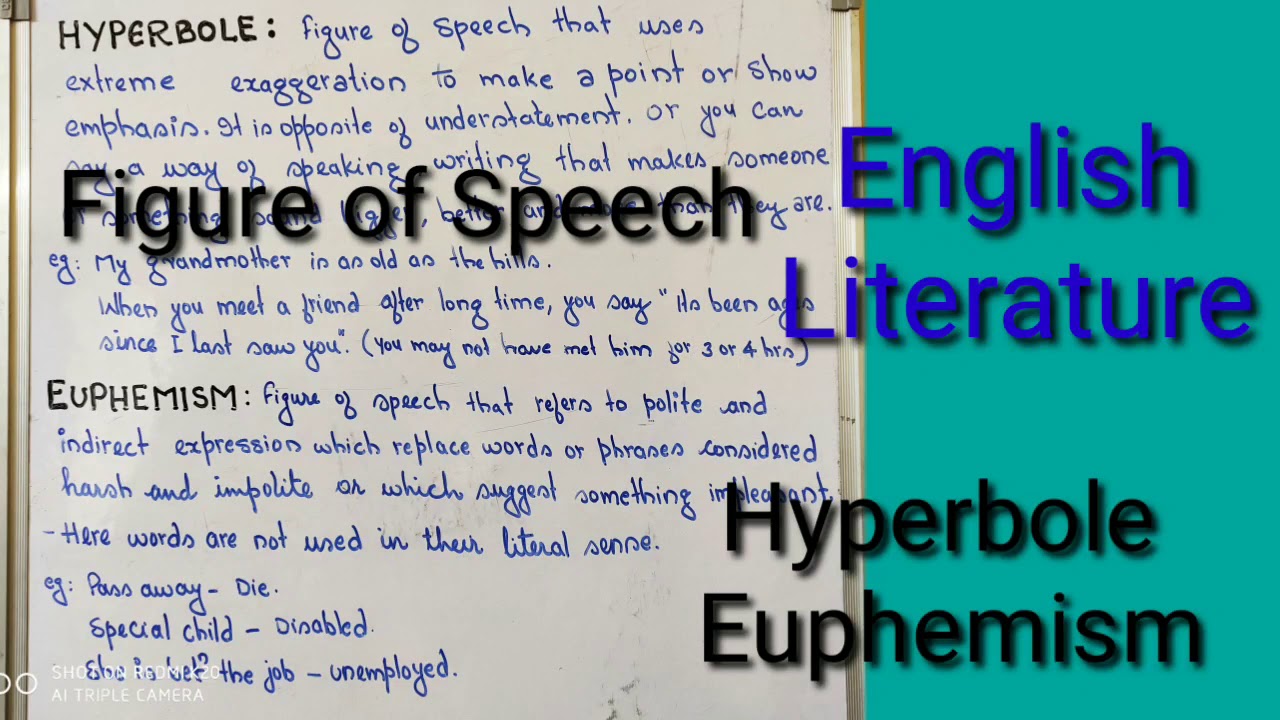 HYPERBOLE: figure of speech that uses
extreme exaggeration to make a point or show
emphasis. It is opposite of understatement. or you can
say a way of speaking, writing that makes someone
or something sound bigger, better and more than they are.
eg: My grandmother is as old as the hills.
When you meet a friend after long time, you say "Its been ages
since I last saw you". (you may not have met him for 3 or 4 hrs)
EUPHEMISM: figure of speech that refers to polite and
indirect expression which replace words or phrases considered
harsh and impolite or which suggest something impleasant.
- Here words are not used in their literal sense.
eg: Pass away - Die.
Special child - Disabled.
the job - unemployed.
SHOT ON REDMI
AI TRIPLE CAMERA
Figure of Speech
English
Literature
Hyperbole
Euphemism